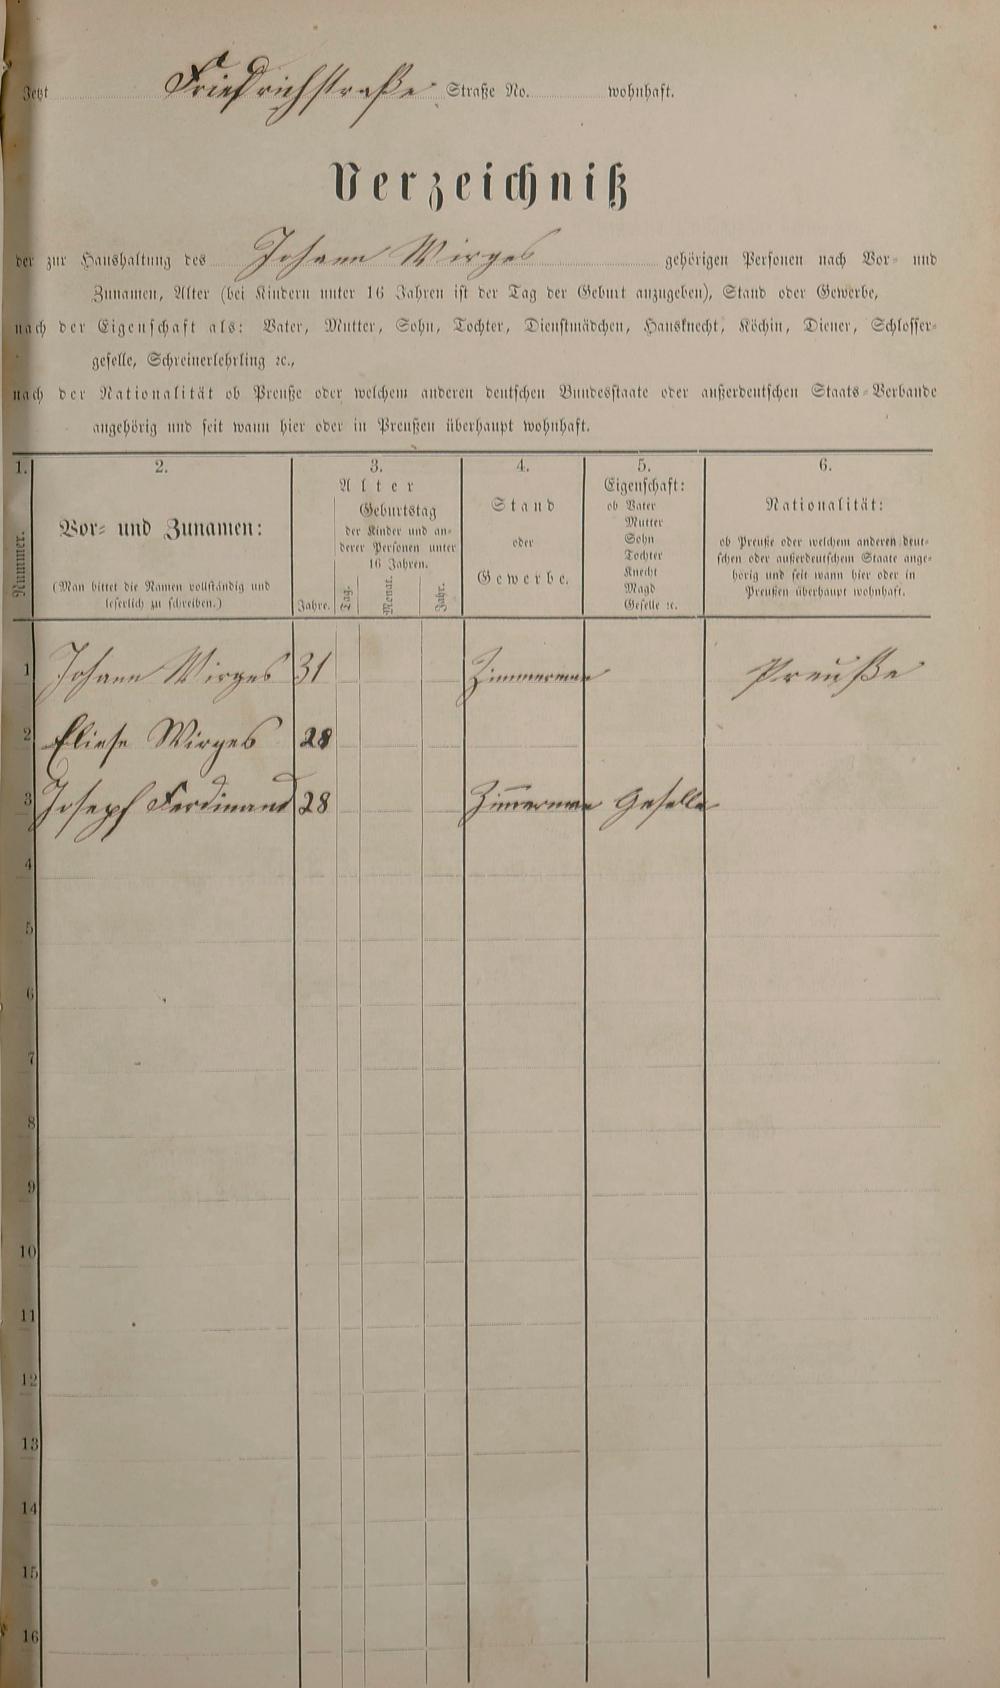 Jetzt Friedrichstraße Straße No. wohnhaft.
Verzeichniß
der zur Haushaltung des Johann Wirges gehörigen Personen nach Vor- und
Zunamen, Alter (bei Kindern unter 16 Jahren ist der Tag der Geburt anzugeben), Stand oder Gewerbe,
nach der Eigenschaft als: Vater, Mutter, Sohn, Tochter, Dienstmädchen, Hausknecht, Köchin, Diener, Schlosser-
geselle, Schreinerlehrling ꝛc.,
nach der Nationalität ob Preuße oder welchem anderen deutschen Bundesstaate oder außerdeutschen Staats-Verbande
angehörig und seit wann hier oder in Preußen überhaupt wohnhaft.
1. 2. 3. 4. 5. 6.
Nummer.
Vor- und Zunamen:
(Man bittet die Namen vollständig und
leserlich zu schreiben.)
Alter
Jahre.
Geburtstag
der Kinder und an-
derer Personen unter
16 Jahren.
Tag.
Monat.
Jahr.
Stand
oder
Gewerbe.
Eigenschaft:
ob Vater
Mutter
Sohn
Tochter
Knecht
Magd
Geselle ꝛc.
Nationalität:
ob Preuße oder welchem anderen deut-
schen oder außerdeutschem Staate ange-
hörig und seit wann hier oder in
Preußen überhaupt wohnhaft.
1 Johann Wirges 31 Zimmerman Preuße
2 Eliese Wirges 28
3 Josepf Ferdinand 28 Zimmerman Geselle
4
5
6
7
8
9
10
11
12
13
14
15
16